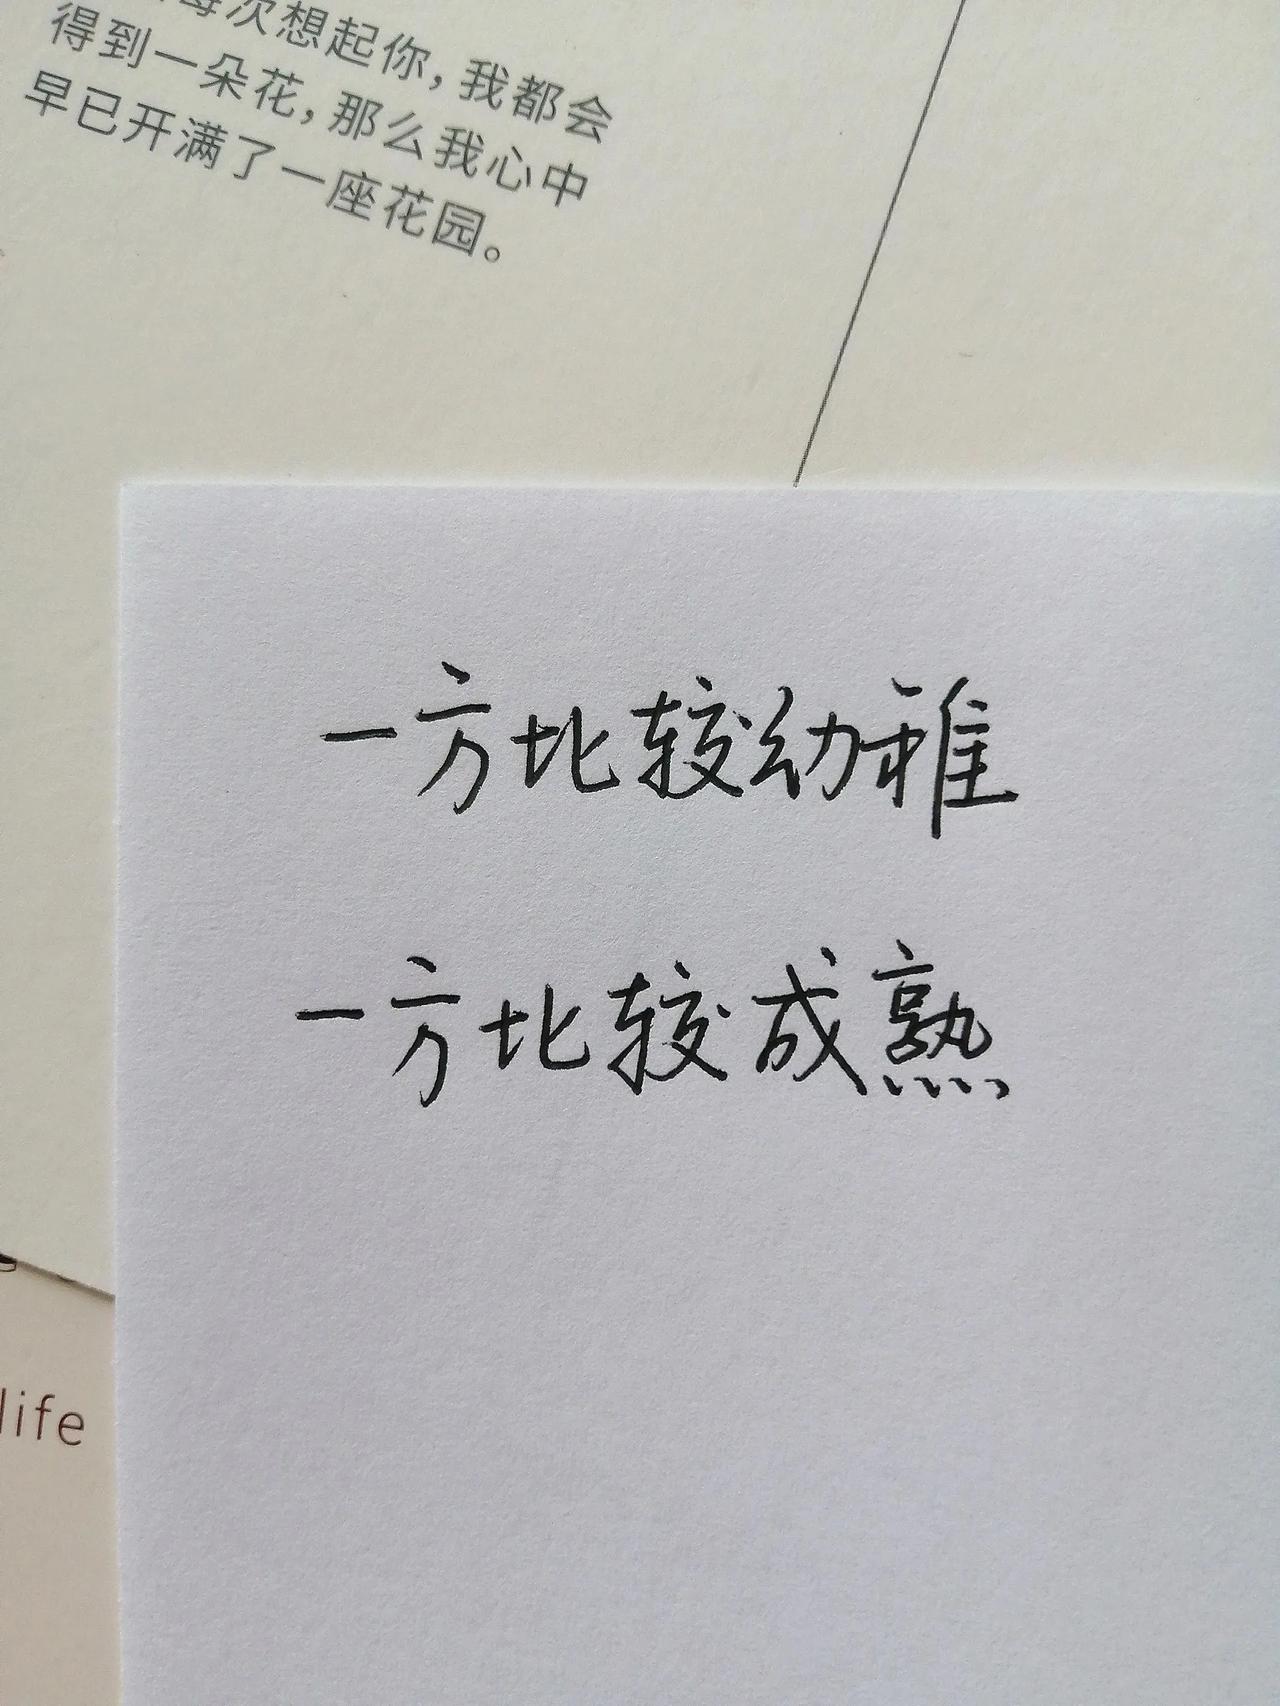 每次想起你，我都会
得到一朵花，那么我心中
早已开满了一座花园。
一方比较幼稚
一方比较成熟
life